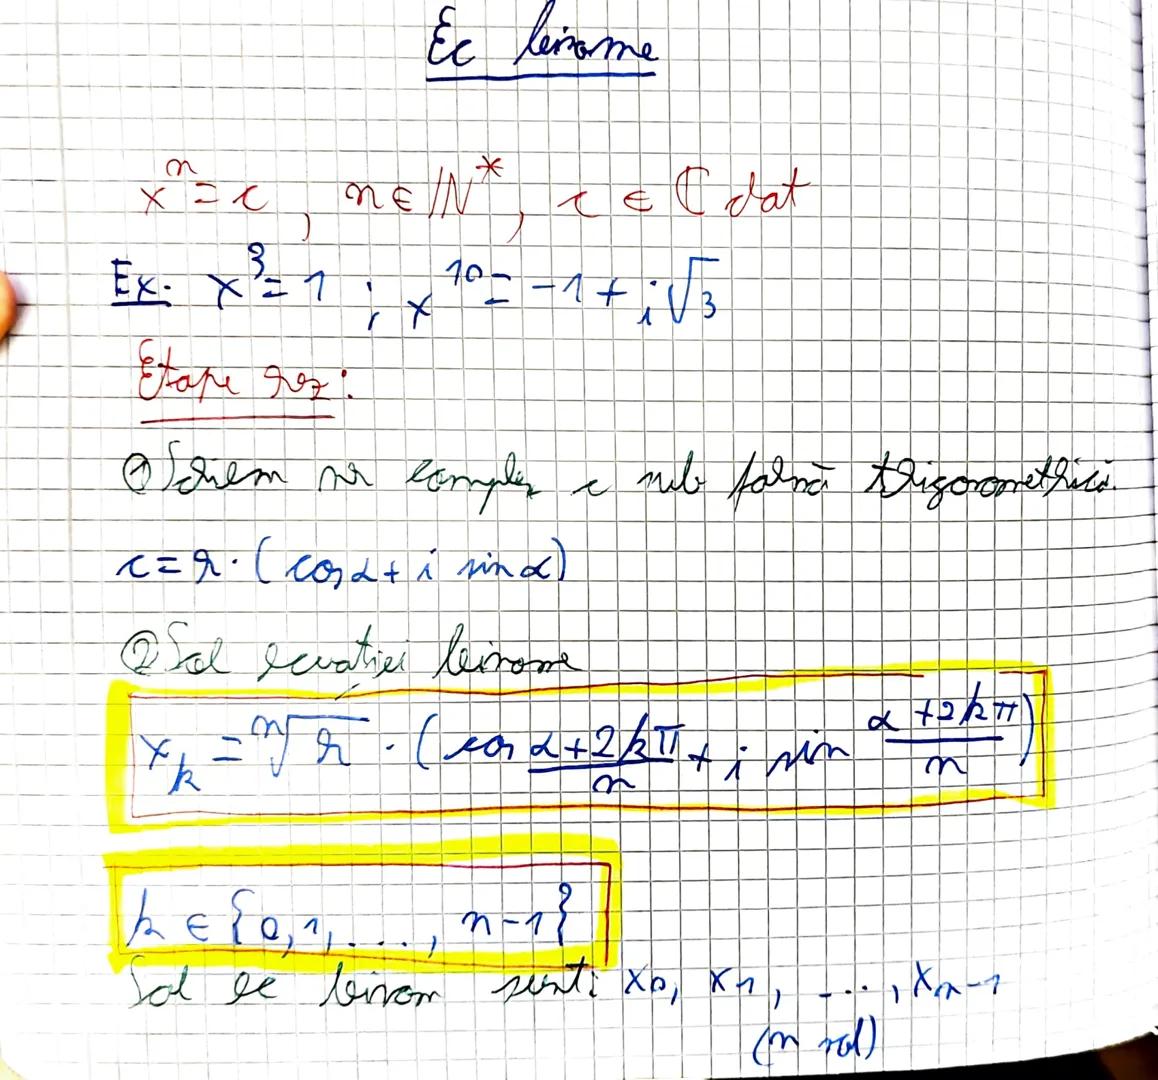 Ec binome
xⁿ = c, n ∈ ℕ*, c ∈ ℂ dat
Ex: x³ = 1 ; x¹⁰ = -1 + i√3
Etape rez:
① Scriem nr complex c sub formă trigonometrică.
c = r · (cos α + i sin α)
② Sol ecuației binome
xₖ = ⁿ√r · (cos (α+2kπ)/n + i sin (α+2kπ)/n)
k ∈ {0, 1, ...., n-1}
Sol ec binom sunt: x₀, x₁, ...., xₙ₋₁
(n sol)